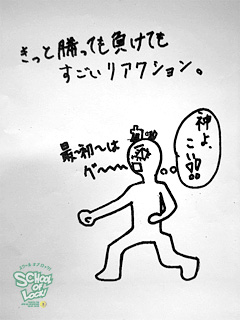 きっと勝っても負けても
すごいリアクション。
神よ、
こい!!
最〜初〜は
グ〜〜〜
SCHOOL
OF
LOCK!